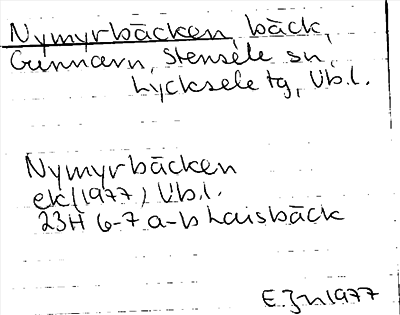 Nymyrbäcken, bäck,
Gunnarn, Stensele sn,
Lycksele tg, Vb.l.
Nymyrbäcken
ek (1977) Vb.l.
23H 6-7 a-b Laisbäck
E.Jn 1977